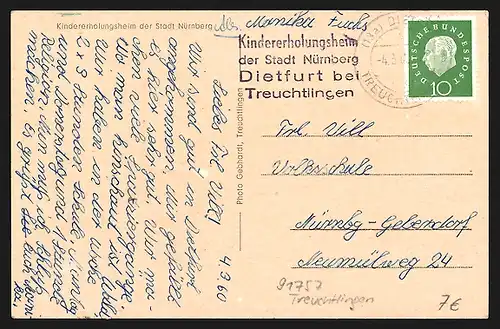 Kindererholungsheim der Stadt Nürnberg
Abs. Monika Fuchs
Kindererholungsheim
der Stadt Nürnberg
Dietfurt bei
Treuchtlingen
DEUTSCHE BUNDESPOST
10
4.9.60
Liebes Frl Vill!
Wir sind gut in Dietfurt
angekommen, mir gefällt
es hier sehr gut. Wir ma-
chen viele Spaziergänge.
Wo man hinschaut ist Wald.
Wir haben in der Woche
2 x 3 Stunden Schule, Montag
und Donnerstag und 1 Stunde
Religion den mag ich
Es grüßt Sie Eure Moni-
ka.
Photo Gebhardt, Treuchtlingen
Frl. Vill
Volksschule
Nürnbg-Gebersdorf
Neumühlweg 24
91757
Treuchtlingen
7€